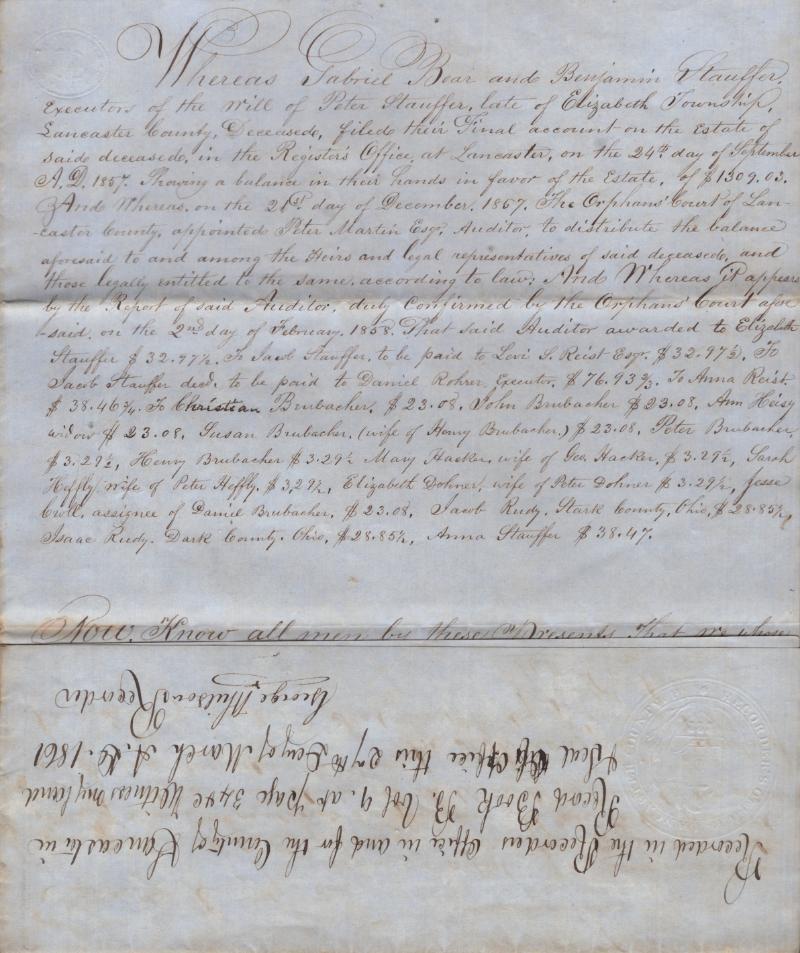 Whereas Gabriel Bear and Benjamin Stauffer,
Executors of the Will of Peter Stauffer, late of Elizabeth Township,
Lancaster County, Deceased, filed their Final account on the Estate of
said deceased, in the Register's Office, at Lancaster, on the 24th day of September
A.D. 1857. Showing a balance in their hands in favor of the Estate, of $1309.03.
And Whereas, on the 21st day of December, 1857, The Orphans' Court of Lan-
-caster County, appointed Peter Martin Esq. Auditor, to distribute the balance
aforesaid to and among the Heirs and legal representatives of said deceased, and
those legally entitled to the same, according to law; And Whereas it appears
by the Report of said Auditor, duly confirmed by the Orphans' Court afore
said, on the 2nd day of February, 1858. That said Auditor awarded to Elizabeth
Stauffer $32.97½, To Jacob Stauffer, to be paid to Levi S. Reist Esq. $32.97½, To
Jacob Stauffer decd. to be paid to Daniel Rohrer, Executor, $76.93⅔, To Anna Reist
$38.46¾, To Christian Brubacher, $23.08, John Brubacher $23.08, Ann Heisy
widow $23.08, Susan Brubacher, (wife of Henry Brubacher,) $23.08, Peter Brubacher,
$3.29½, Henry Brubacher $3.29½ Mary Hacker, wife of Geo. Hacker, $3.29½, Sarah
Heffly, wife of Peter Heffly, $3,29½, Elizabeth Dohner, wife of Peter Dohner $3.29½, Jesse
assignee of Daniel Brubacher, $23.08, Jacob Rudy, Stark County, Ohio, $28.85½,
Isaac Rudy, Dark County, Ohio, $28.85½, Anna Stauffer $38.47.
Now, Know all men by these Presents That we whose
Recorded in the Recorders Office in and for the County of Lancaster in
Record Book B. Vol 9. at Page 348 Witness my hand
& Seal of Office this 27th Day of March A.D. 1861
George Recorder